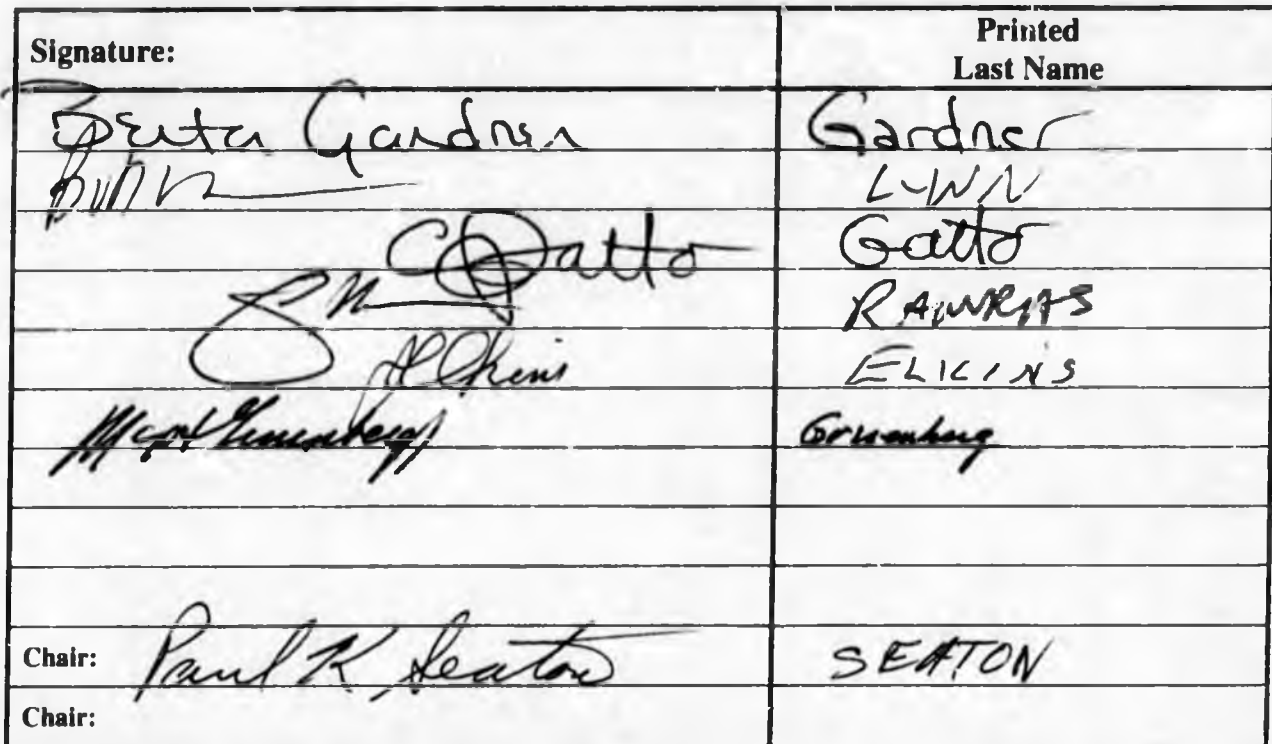 Signature: Printed Last Name
Berta Gardner Gardner
LYNN
Gatto Gatto
RAMRAS
Elkins ELKINS
Gruenberg Gruenberg
Chair: Paul K Seaton SEATON
Chair: